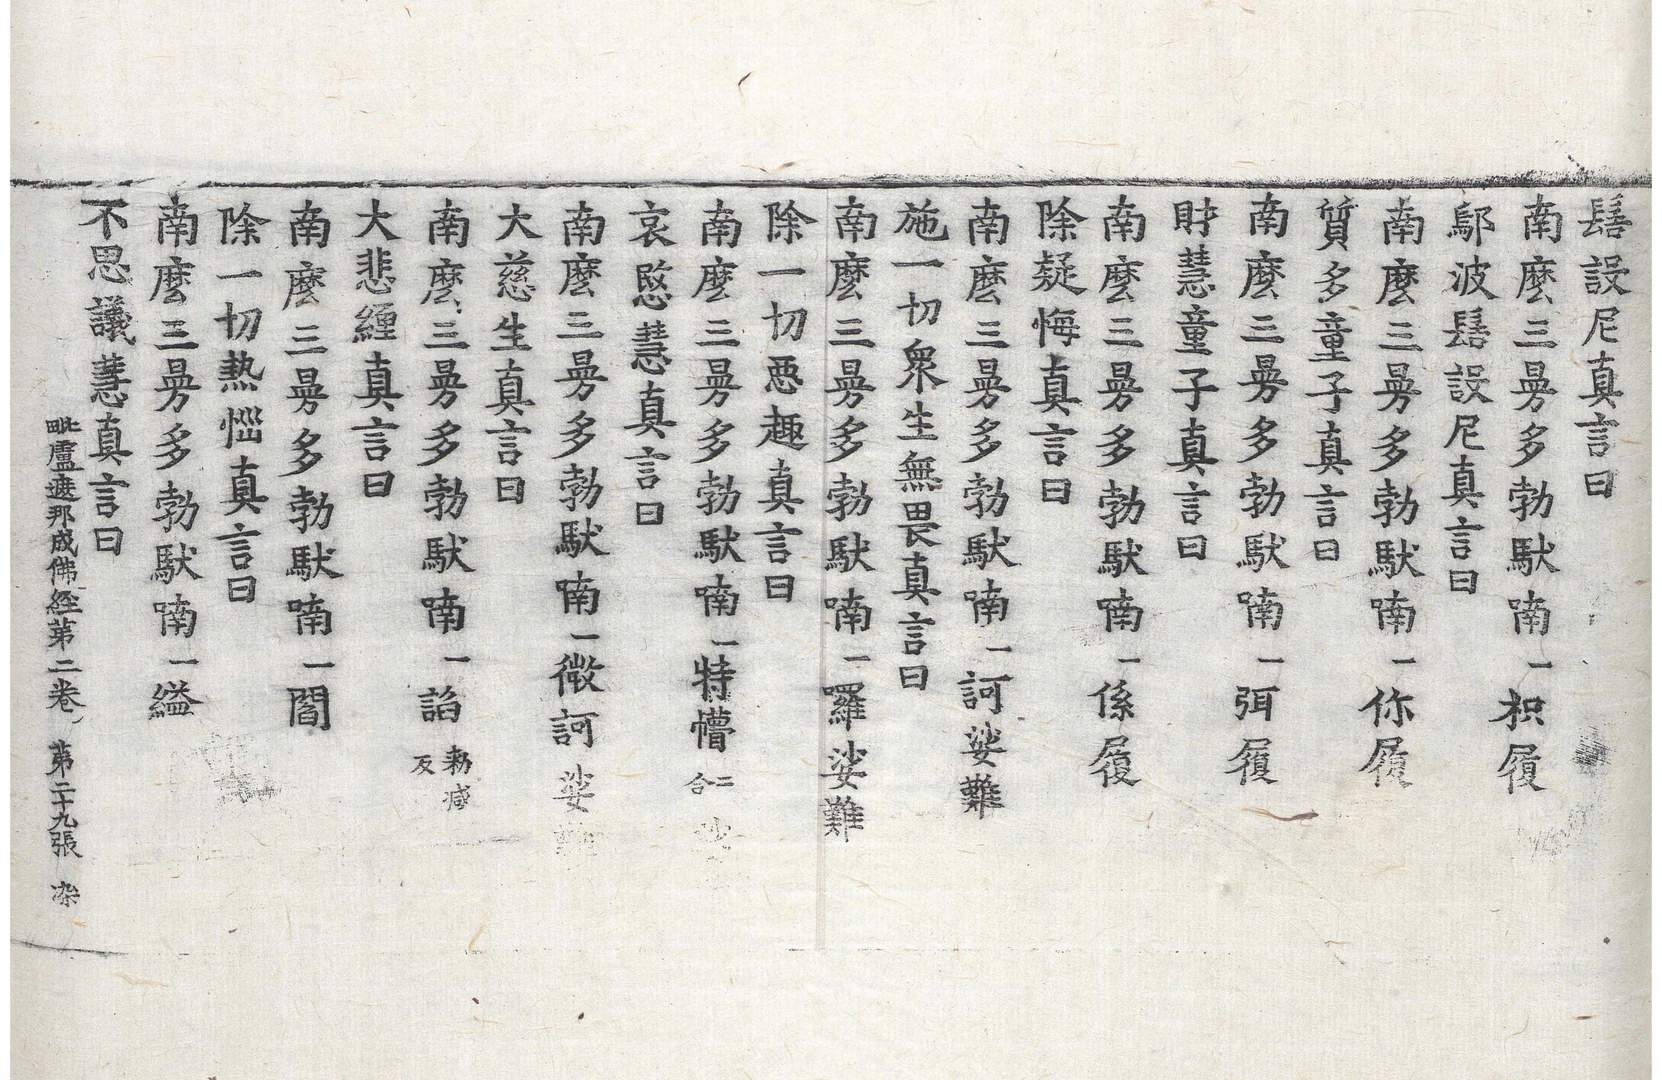 髻設尼真言曰
南麽三曼多勃馱喃一枳履
鄔波髻設尼真言曰
南麽三曼多勃馱喃一你履
質多童子真言曰
南麽三曼多勃馱喃一弭履
財慧童子真言曰
南麽三曼多勃馱喃一係履
除疑悔真言曰
南麽三曼多勃馱喃一訶娑難
施一切衆生無畏真言曰
南麽三曼多勃馱喃一囉娑難
除一切惡趣真言曰
南麽三曼多勃馱喃一特懵二合
哀愍慧真言曰
南麽三曼多勃馱喃一微訶娑
大慈生真言曰
南麽三曼多勃馱喃一諂勑減反
大悲纏真言曰
南麽三曼多勃馱喃一閻
除一切熱惱真言曰
南麽三曼多勃馱喃一縊
不思議慧真言曰
毗盧遮那成佛經第二卷 第二十九張 染